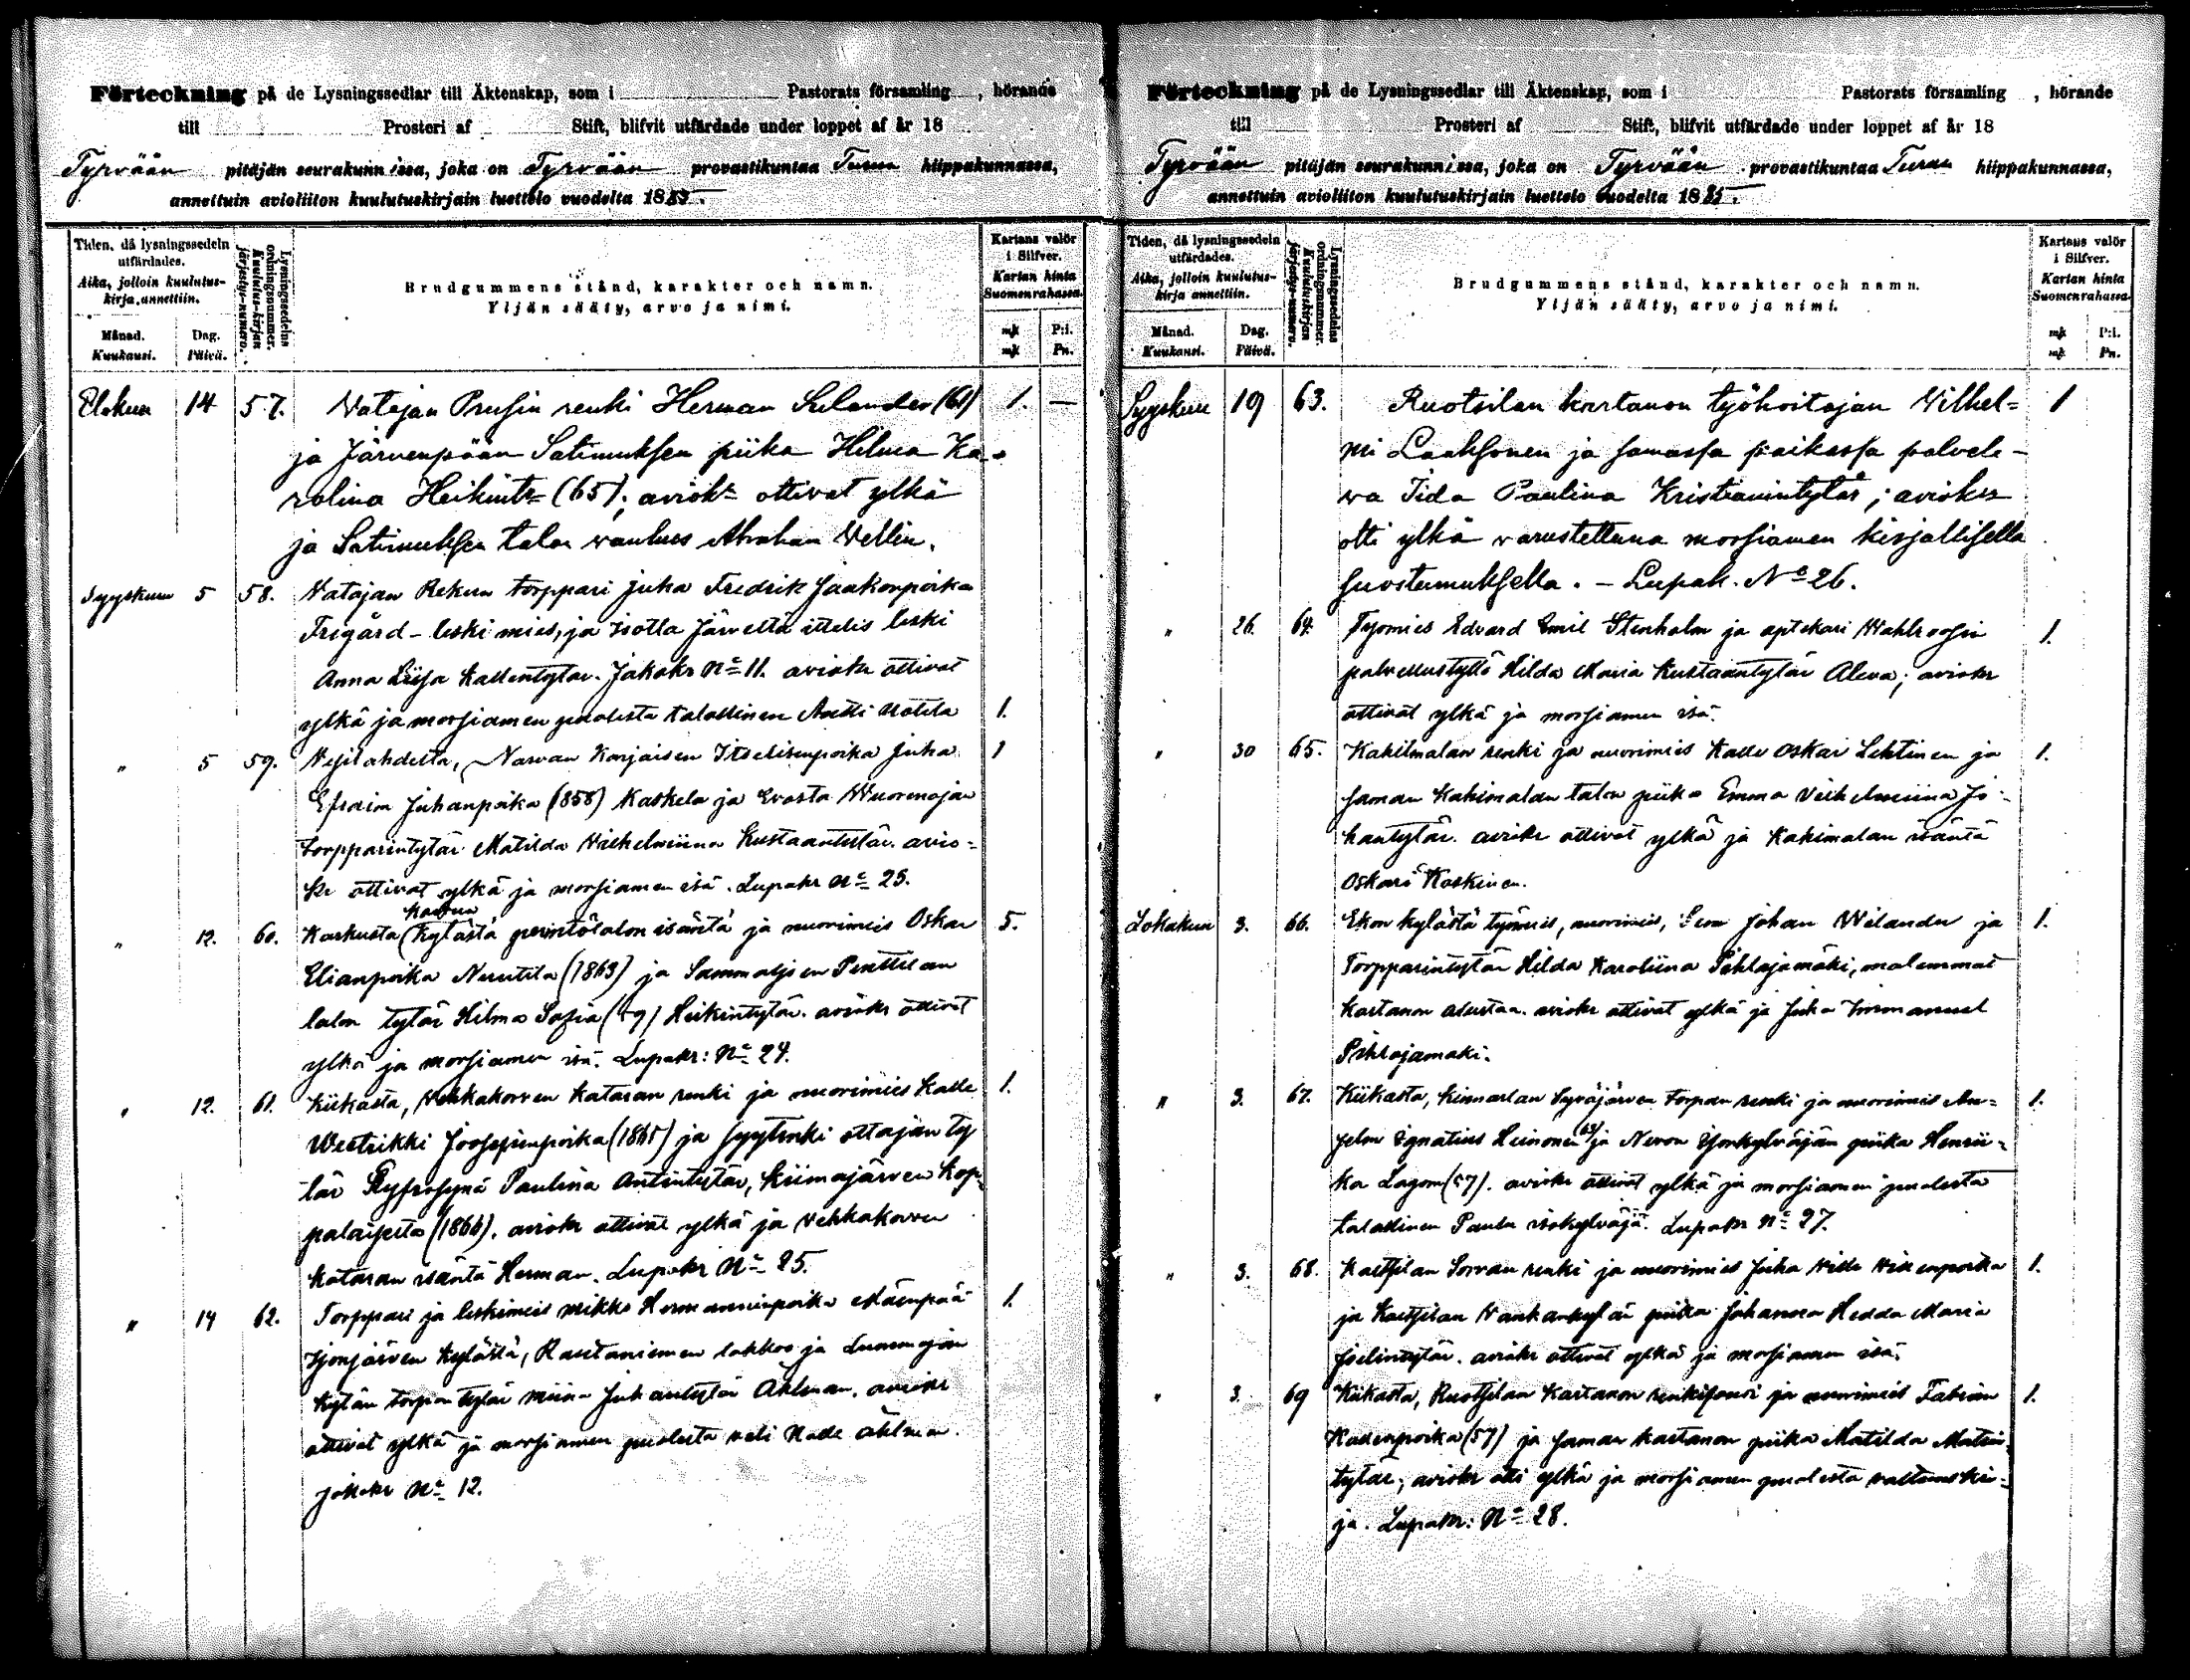 Förteckning på de Lysningssedlar till Äktenskap, som i Pastorats församling , hörande
till Prosteri af Stift, blifvit utfärdade under loppet af år 18
Tyrvään pitäjän seurakunnissa, joka on Tyrvään provastikuntaa Turun hiippakunnassa,
annettuin avioliiton kuulutuskirjain luettelo vuodelta 1885.
Tiden, då lysningssedeln utfärdades.
Aika, jolloin kuulutus-kirja annettiin.
Månad. Kuukausi.
Dag. Päivä.
Lysningssedelns ordningsnummer.
Kuulutus-kirjan järjestys-numero.
Brudgummens stånd, karakter och namn.
Yljän sääty, arvo ja nimi.
Kartans valör i Silfver.
Kartan hinta Suomenrahassa.
mk P:i.
mk Pn.
Elokuu 14 57. Vatajan Prusin renki Herman Sulander (61) 1. —
ja Järvenpään Satimuksen piika Helma Ka-
rolina Heikint: (65); aviokr: ottivat ylkä
ja Satimuksen talon vanhus Abraham Vellin.
Syyskuu 5 58. Vatajan Rekun torppari Juha Fredrik Jaakonpoika
Frigård - leski mies, ja Isolta Järveltä ittelis leski
Anna Liisa Kallentytar. Jakokr No 11. aviokr ottivat
ylkä ja morsiamen puolesta talollinen Antti Uotila 1.
" 5 59. Vesilahdelta, Narvan Karjaisen Itsellisenpoika Juha 1
Efraim Juhanpoika (1858) Kaskela ja Evosta Wuorenojan
torpparintytär Matilda Vilhelmiina Kustaantytär. avio-
kr ottivat ylkä ja morsiamen isä. Lupakr No 23.
" 12. 60. Karkusta (Karkun Kylästä perintötalon isäntä ja nuorimies Oskar 5.
Elianpoika Nuutila (1863) ja Sammaljoen Penttilän
talon tytär Hilma Sofia Heikintytär. aviokr ottivat
ylkä ja morsiamen isä. Lupakr: No 24.
" 12. 61. Kiikasta, Vehkakorven Kataran renki ja nuorimies Kalle 1.
Weetrikki Joosepinpoika (1865) ja syytinki ottajan ty
tär Paulina Antintytär, Kiimajärven Kop-
palaisesta (1866). aviokr ottivat ylkä ja Vehkakorven
Kataran isäntä Herman. Lupakr No 25.
" 14 62. Torppari ja leskimies Mikko Hermanninpoika Mäenpää 1.
Iljonjärven Kylästä, Rautaniemen lohkoo ja Lummajan
Kylän torpan tytär Miina Juhantytär Åhlman. aviokr
ottivat ylkä ja morsiamen puolesta veli Kalle Åhlman.
Jakokr No 12.
Förteckning på de Lysningssedlar till Äktenskap, som i Pastorats församling , hörande
till Prosteri af Stift, blifvit utfärdade under loppet af år 18
Tyrvään pitäjän seurakunnissa, joka on Tyrvään provastikuntaa Turun hiippakunnassa,
annettuin avioliiton kuulutuskirjain luettelo vuodelta 1885.
Tiden, då lysningssedeln utfärdades.
Aika, jolloin kuulutus-kirja annettiin.
Månad. Kuukausi.
Dag. Päivä.
Lysningssedelns ordningsnummer.
Kuulutuskirjan järjestys-numero.
Brudgummens stånd, karakter och namn.
Yljän sääty, arvo ja nimi.
Kartans valör i Silfver.
Kartan hinta Suomenrahassa.
mk P:i.
mk Pn.
Syyskuu 19 63. Ruotsilan kartanon työhoitajan Vilhel= 1
mi Laaksonen ja samassa paikassa palvele-
va Iida Paulina Kristianintytär; aviokr
otti ylkä varustettuna morsiamen kirjallisella
suostumuksella. - Lupak. No 26.
" 26. 64. Työmies Edvard Emil Stenholm ja aptekari Wahlroosin 1.
palvellustyttö Hilda Maria Kustaantytär Aleva; aviokr
ottivat ylkä ja morsiamen isä.
" 30 65. Kahilmalan renki ja nuorimies Kalle Oskar Lehtinen ja 1.
saman Kahimalan talon piika Emma Vilhelmiina Jo-
hantytär. aviokr ottivat ylkä ja Kahimalan isäntä
Oskari Koskinen.
Lokakuu 3. 66. Ekon kylästä työmies, nuorimies, Johan Welander ja 1.
Torpparintytär Hilda Karoliina Pihlajamäki, molemmat
kartanon alustaa. aviokr ottivat ylkä ja Juha Immanuel
Pihlajamäki.
" 3. 67. Kiikasta, Kinnarlan Syväjärven torpan renki ja nuorimies An- 1.
selm Ignatius Heinonen (63) ja Nevon Isonkylväjän piika Henrii-
ka Lagom (57). aviokr ottivat ylkä ja morsiamen puolesta
talollinen Isokylväjä. Lupakr No 27.
" 3. 68. Kaltsilan Sorvan renki ja nuorimies Juha Ville Villenpoika 1.
ja Kaltsilan Vanhankylän piika Johanna Hedda Maria
Iselintytär. aviokr ottivat ylkä ja morsiamen isä.
" 3. 69 Kiikasta, Ruotsilan Kartanon renkivouti ja nuorimies Fabian 1.
Kallenpoika (57) ja saman kartanon piika Matilda Matin-
tytär; aviokr otti ylkä ja morsiamen puolesta valtuuskir-
ja. Lupakr: No 28.